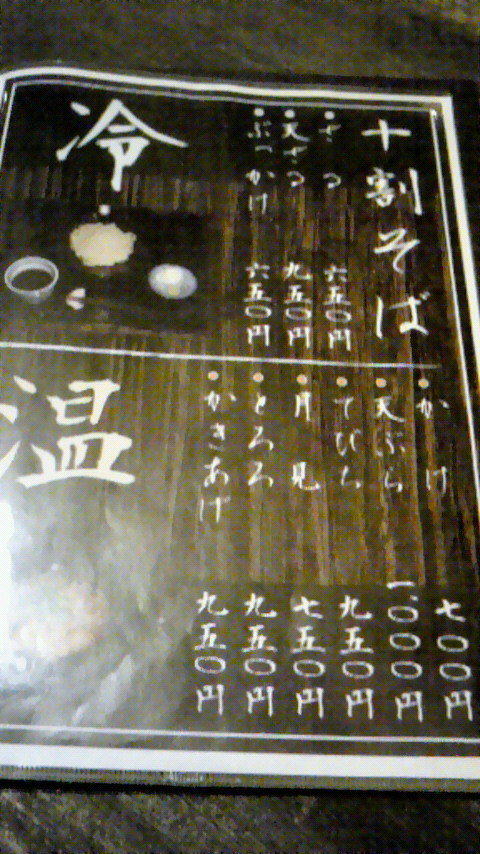 十割そば
冷
・ざる 六五〇円
・天ざる 九五〇円
・ぶっかけ 六五〇円
温
・かけ 七〇〇円
・天ぷら 一、〇〇〇円
・てびち 九五〇円
・月見 七五〇円
・とろろ 九五〇円
・かきあげ 九五〇円